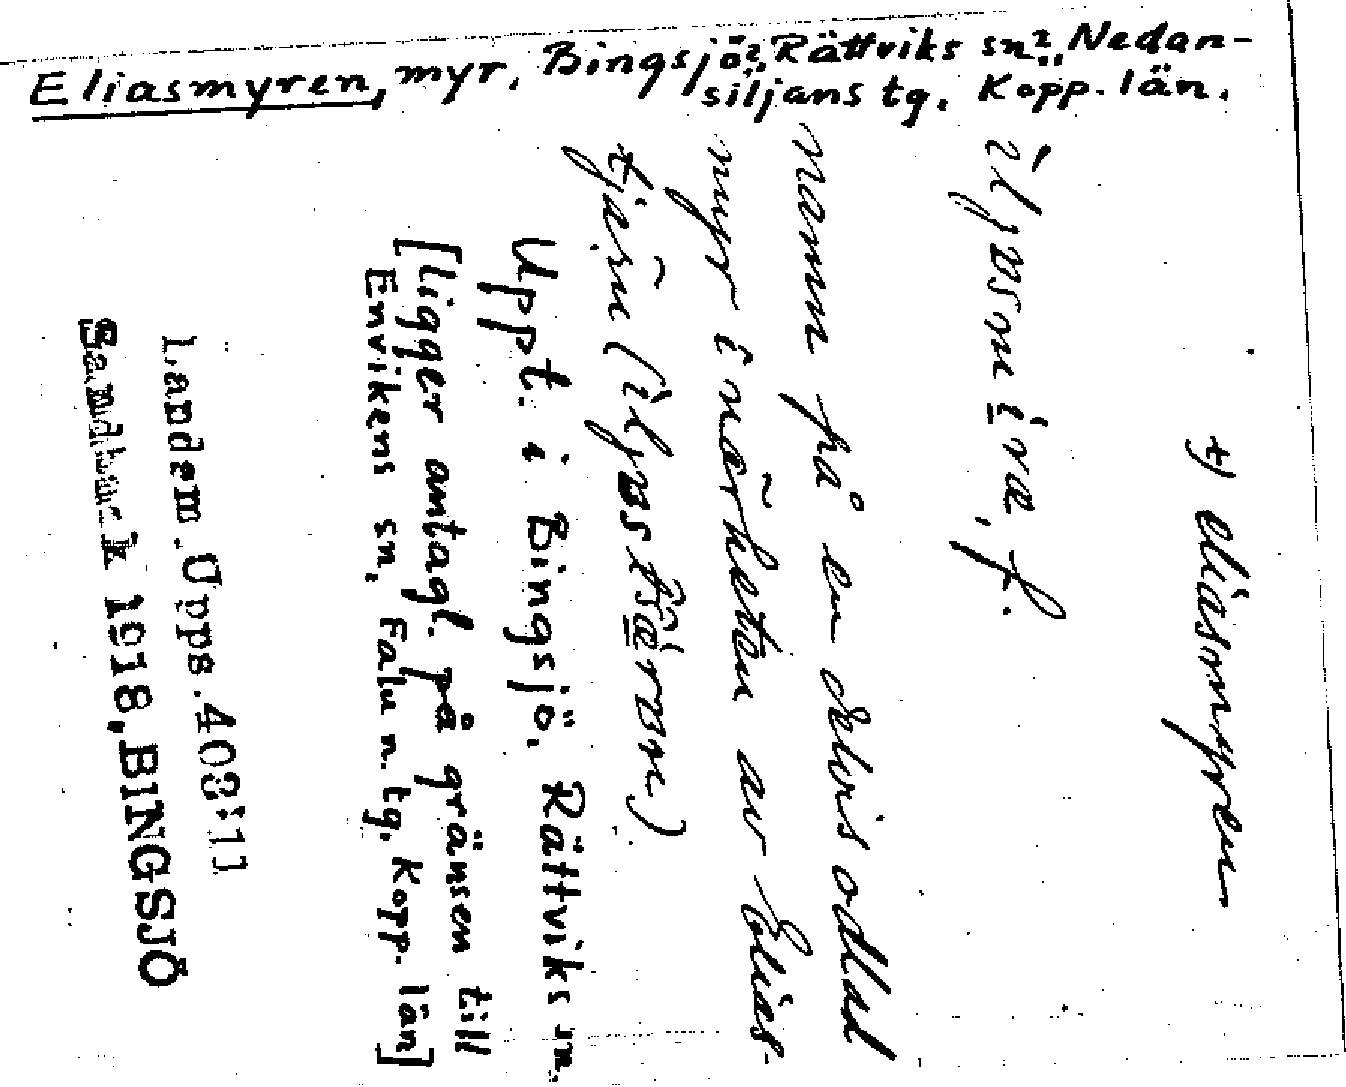 Eliasmyren, myr. Bingsjö?, Rättviks sn?, Nedan-
siljans tg. Kopp. län.
t) eliasmyren
namn på en delvis odlad
myr i närheten av Elias-
tjärn
Uppt. i Bingsjö. Rättviks sn.
[Ligger antagl. på gränsen till
Envikens sn, Falu n. tg, Kopp. län]
Landsm. Upps. 403:11
1918, BINGSJÖ